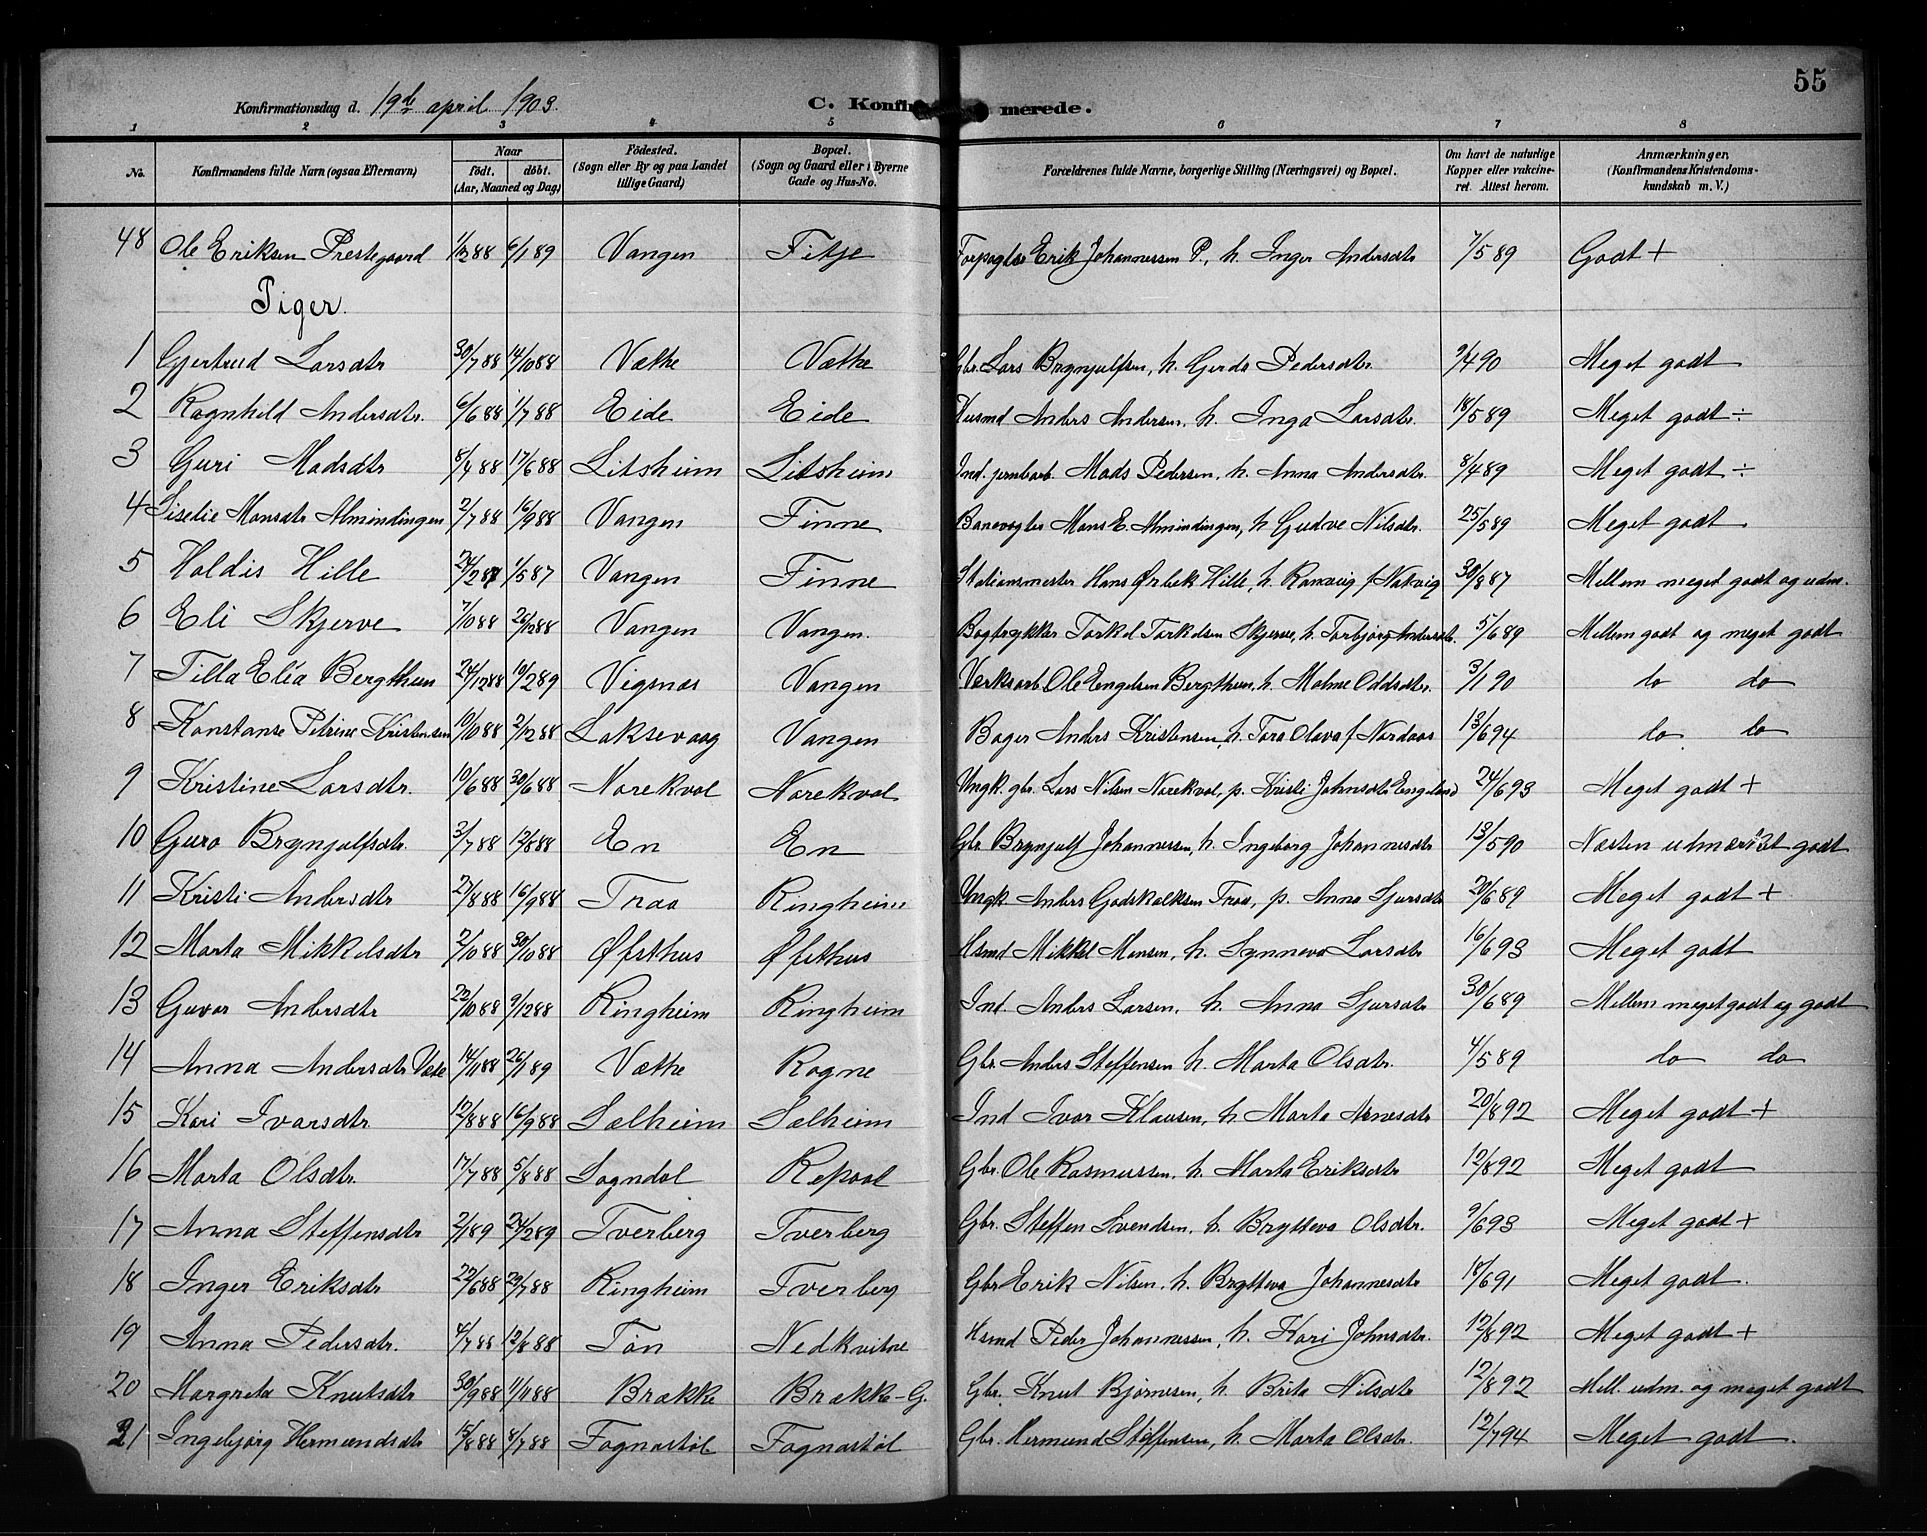 55
Konfirmationsdag d. 19de april 1903. C. Konfirmerede.
1 2 3 4 5 6 7 8
No. Konfirmandens fulde Navn (ogsaa Efternavn) Naar født, døbt. (Aar, Maaned og Dag) Fødested. (Sogn eller By og paa Landet tillige Gaard) Bopæl. (Sogn og Gaard eller i Byerne Gade og Hus-No. Forældrenes fulde Navne, borgerlige Stilling (Næringsvei) og Bopæl. Om havt de naturlige Kopper eller vakcineret. Attest herom. Anmærkninger. (Konfirmandens Kristendomskundskab m. V.)
48 Ole Eriksen Prestegaard 1/12 88 6/1 89 Vangen Fitje Forpagter Erik Johannessen P., h. Inger Andersdtr 7/5 89 Godt +
Piger.
1 Gjertrud Larsdtr 30/7 88 14/10 88 Væthe Væthe Gbr. Lars Brynjulfsen, h. Gerda Pedersdtr. 9/4 90 Meget godt
2 Ragnhild Andersdtr. 6/6 88 1/7 88 Eide Eide Husmd Anders Andersen, h. Inga Larsdtr. 18/5 89 Meget godt ÷
3 Guri Madsdtr 8/4 88 17/6 88 Litsheim Litsheim Ind. jernbarb. Mads Pedersen, h. Anna Andersdtr. 8/4 89 Meget godt ÷
4 Liselie Monsdtr Almindingen 2/7 88 16/9 88 Vangen Finne Banevogter Mons E. Almindingen, h Gudve Nilsdtr. 25/5 89 Meget godt
5 Haldis Hille 24/2 87 1/5 87 Vangen Finne Stationsmester Hans Ørbek Hille, h. Ranveig f. Nakvig 30/8 87 Mellem meget godt og udm.
6 Eli Skjerve 7/10 88 26/12 88 Vangen Vangen. Bogtrykker Torkel Torkelsen Skjerve, h. Torbjørg Andersdtr. 5/6 89 Mellem godt og meget godt
7 Tilla Elia Bergthun 24/12 88 10/2 89 Vigsnæs Vangen Værksarb Ole Engelsen Bergthun, h. Malme Oddsdtr. 3/1 90 do do
8 Konstanse Petrine Kristensen 10/10 88 2/12 88 Laksevaag Vangen Bager Anders Kristensen, h. Tora Olava f Nordaas 13/6 94 do do
9 Kristine Larsdtr. 10/6 88 30/6 88 Norekval Norekval Ungk. gbr. Lars Nilsen Norekval, p. Kristi Johnsdtr Engeland 24/6 93 Meget godt +
10 Guro Brynjulfsdtr. 3/7 88 12/8 88 En En Gbr Brynjulf Johannessen, h. Ingeborg Johannesdtr 13/5 90 Næsten udmærket godt
11 Kristi Andersdtr 27/8 88 16/9 88 Traa Ringheim Ungk Anders Godskalksen Traa, p. Anna Sjursdtr 20/6 89 Meget godt +
12 Marta Mikkelsdtr 2/10 88 30/10 88 Øfsthus Øfsthus Hsmd Mikkel Monsen, h. Synneva Larsdtr 16/6 93 Meget godt
13 Guvor Andersdtr 22/10 88 9/12 88 Ringheim Ringheim Ind. Anders Larsen, h. Anna Sjursdtr 30/6 89 Mellem meget godt og godt
14 Anna Andersdtr Væte 14/11 88 26/1 89 Væthe Rogne Gbr. Anders Steffensen h. Marta Olsdtr. 4/5 89 do do
15 Kari Ivarsdtr 12/8 88 16/9 88 Sælheim Sælheim Ind Ivar Klausen, h Marta Arnesdtr 20/8 92 Meget godt +
16 Marta Olsdtr. 17/7 88 5/8 88 Sogndal Repaal Gbr. Ole Rasmussen, h. Marta Eriksdtr 12/8 92 Meget godt
17 Anna Steffensdtr 2/1 89 24/2 89 Tverberg Tverberg Gbr. Steffen Svendsen, h. Brytteva Olsdtr. 9/6 93 Meget godt +
18 Inger Eriksdtr 22/6 88 29/7 88 Ringheim Tverberg Gbr Erik Nilsen, h. Brytteva Johannesdtr 18/6 91 Meget godt.
19 Anna Pedersdtr. 4/7 88 12/8 88 Tøn Nedkvitne Hsmd Peder Johannessen, h. Kari Johnsdtr. 12/8 92 Meget godt +
20 Margreta Knutsdtr 30/9 88 11/11 88 Brække Brække-G. Gbr. Knut Bjørnesen, h. Brita Nilsdtr 12/8 92 Mell. udm. og meget godt
21 Ingebjørg Hermundsdtr 15/8 88 8/7 88 Fagnastøl Fagnastøl Gbr. Hermund Steffensen, h. Marta Olsdtr. 12/7 94 Meget godt.